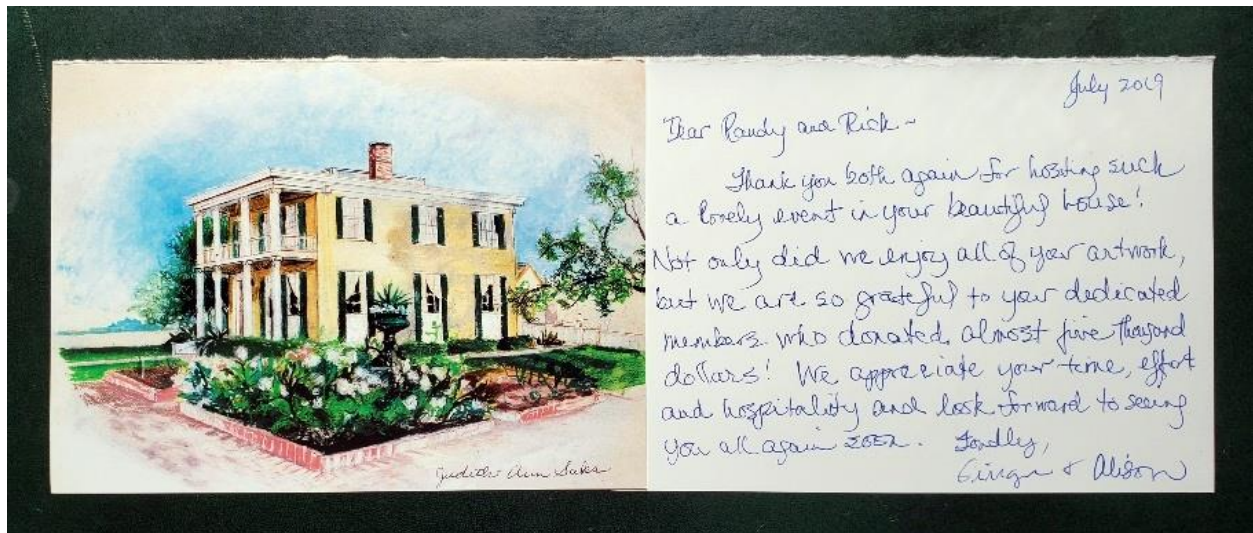 July 2019
Dear Randy and Rick ~
Thank you both again for hosting such
a lovely event in your beautiful house!
Not only did we enjoy all of your artwork,
but we are so grateful to your dedicated
members who donated almost five thousand
dollars! We appreciate your time, effort
and hospitality and look forward to seeing
you all again soon. Fondly,
Ginger & Alison
Judith Ann